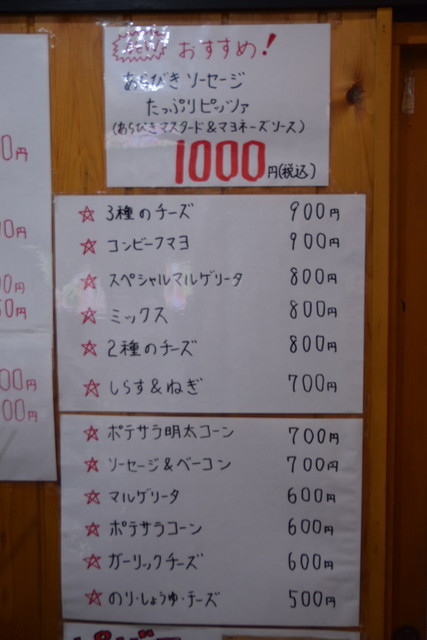 NEW おすすめ!
あらびきソーセージ
たっぷりピッツァ
(あらびきマスタード&マヨネーズソース)
1000円(税込)
☆ 3種のチーズ 900円
☆ コンビーフマヨ 900円
☆ スペシャルマルゲリータ 800円
☆ ミックス 800円
☆ 2種のチーズ 800円
☆ しらす&ねぎ 700円
☆ ポテサラ明太コーン 700円
☆ ソーセージ&ベーコン 700円
☆ マルゲリータ 600円
☆ ポテサラコーン 600円
☆ ガーリックチーズ 600円
☆ のり・しょうゆ・チーズ 500円